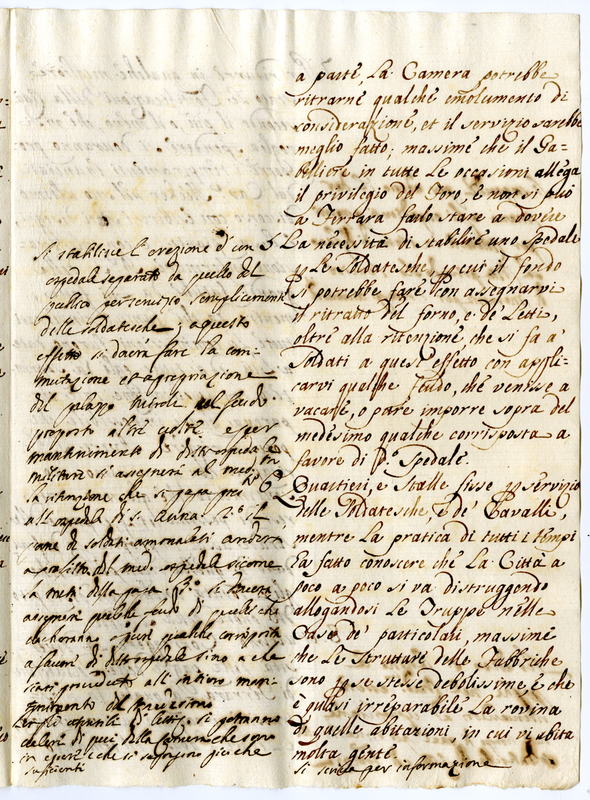 a parte, La Camera potrebbe
ritrarne qualche emolumento di
considerazione, et il servizio sarebbe
meglio fatto; massime che il Ga-
belliere in tutte Le occasioni allega
il privilegio del Foro, e non si può
a Ferrara farlo stare a dovere
5 La necessità di stabilire uno Spedale
p Le Soldatesche, p cui il fondo
si potrebbe fare con assegnarvi
il ritratto del forno, e de' Letti,
oltre alla ritenzione, che si fa a'
Soldati a quest'effetto con appli-
carvi qualche feudo, che venisse a
vacare, o pure imporre sopra del
medesimo qualche corrisposta a
favore di d.º Spedale
6 Quartieri, e Stalle fisse p servizio
delle Soldatesche, e de' Cavalli,
mentre La pratica di tutti i tempi
ha fatto conoscere che La Città a
poco a poco si va distruggendo
allogandosi Le Truppe nelle
Case de' particolari, massime
che Le Strutture delle Fabbriche
sono p se stesse debolissime, e che
è quasi irreparabile La rovina
di quelle abitazioni, in cui vi abita
molta gente
si scriva per informazione
Si stabilisce l'erezione d'un
ospedale separato da quello del
publico per servizio semplicemente
delle soldatesche; a questo
effetto si dovrà fare la com-
mutazione et agregazione
del palazzo
proposto altre volte e per
mantenimento di d.º ospedale
militare si assegnerà al med.
sa ritenzione che si paga
all ospedale di S. Anna 2.º il
pane di soldati amalati anderà
a profitto del med. ospedale sicome
la metà della paga 3.º si dovrà
assegnare qualche feudo di quelli che
o pure qualche corrisposta
a favore di d.º ospedale sino a che
sarà proveduto all intiero man-
tenimento del medesimo
di letti si potranno
della Camera che sono
in essere che si sapiino più che
suficienti